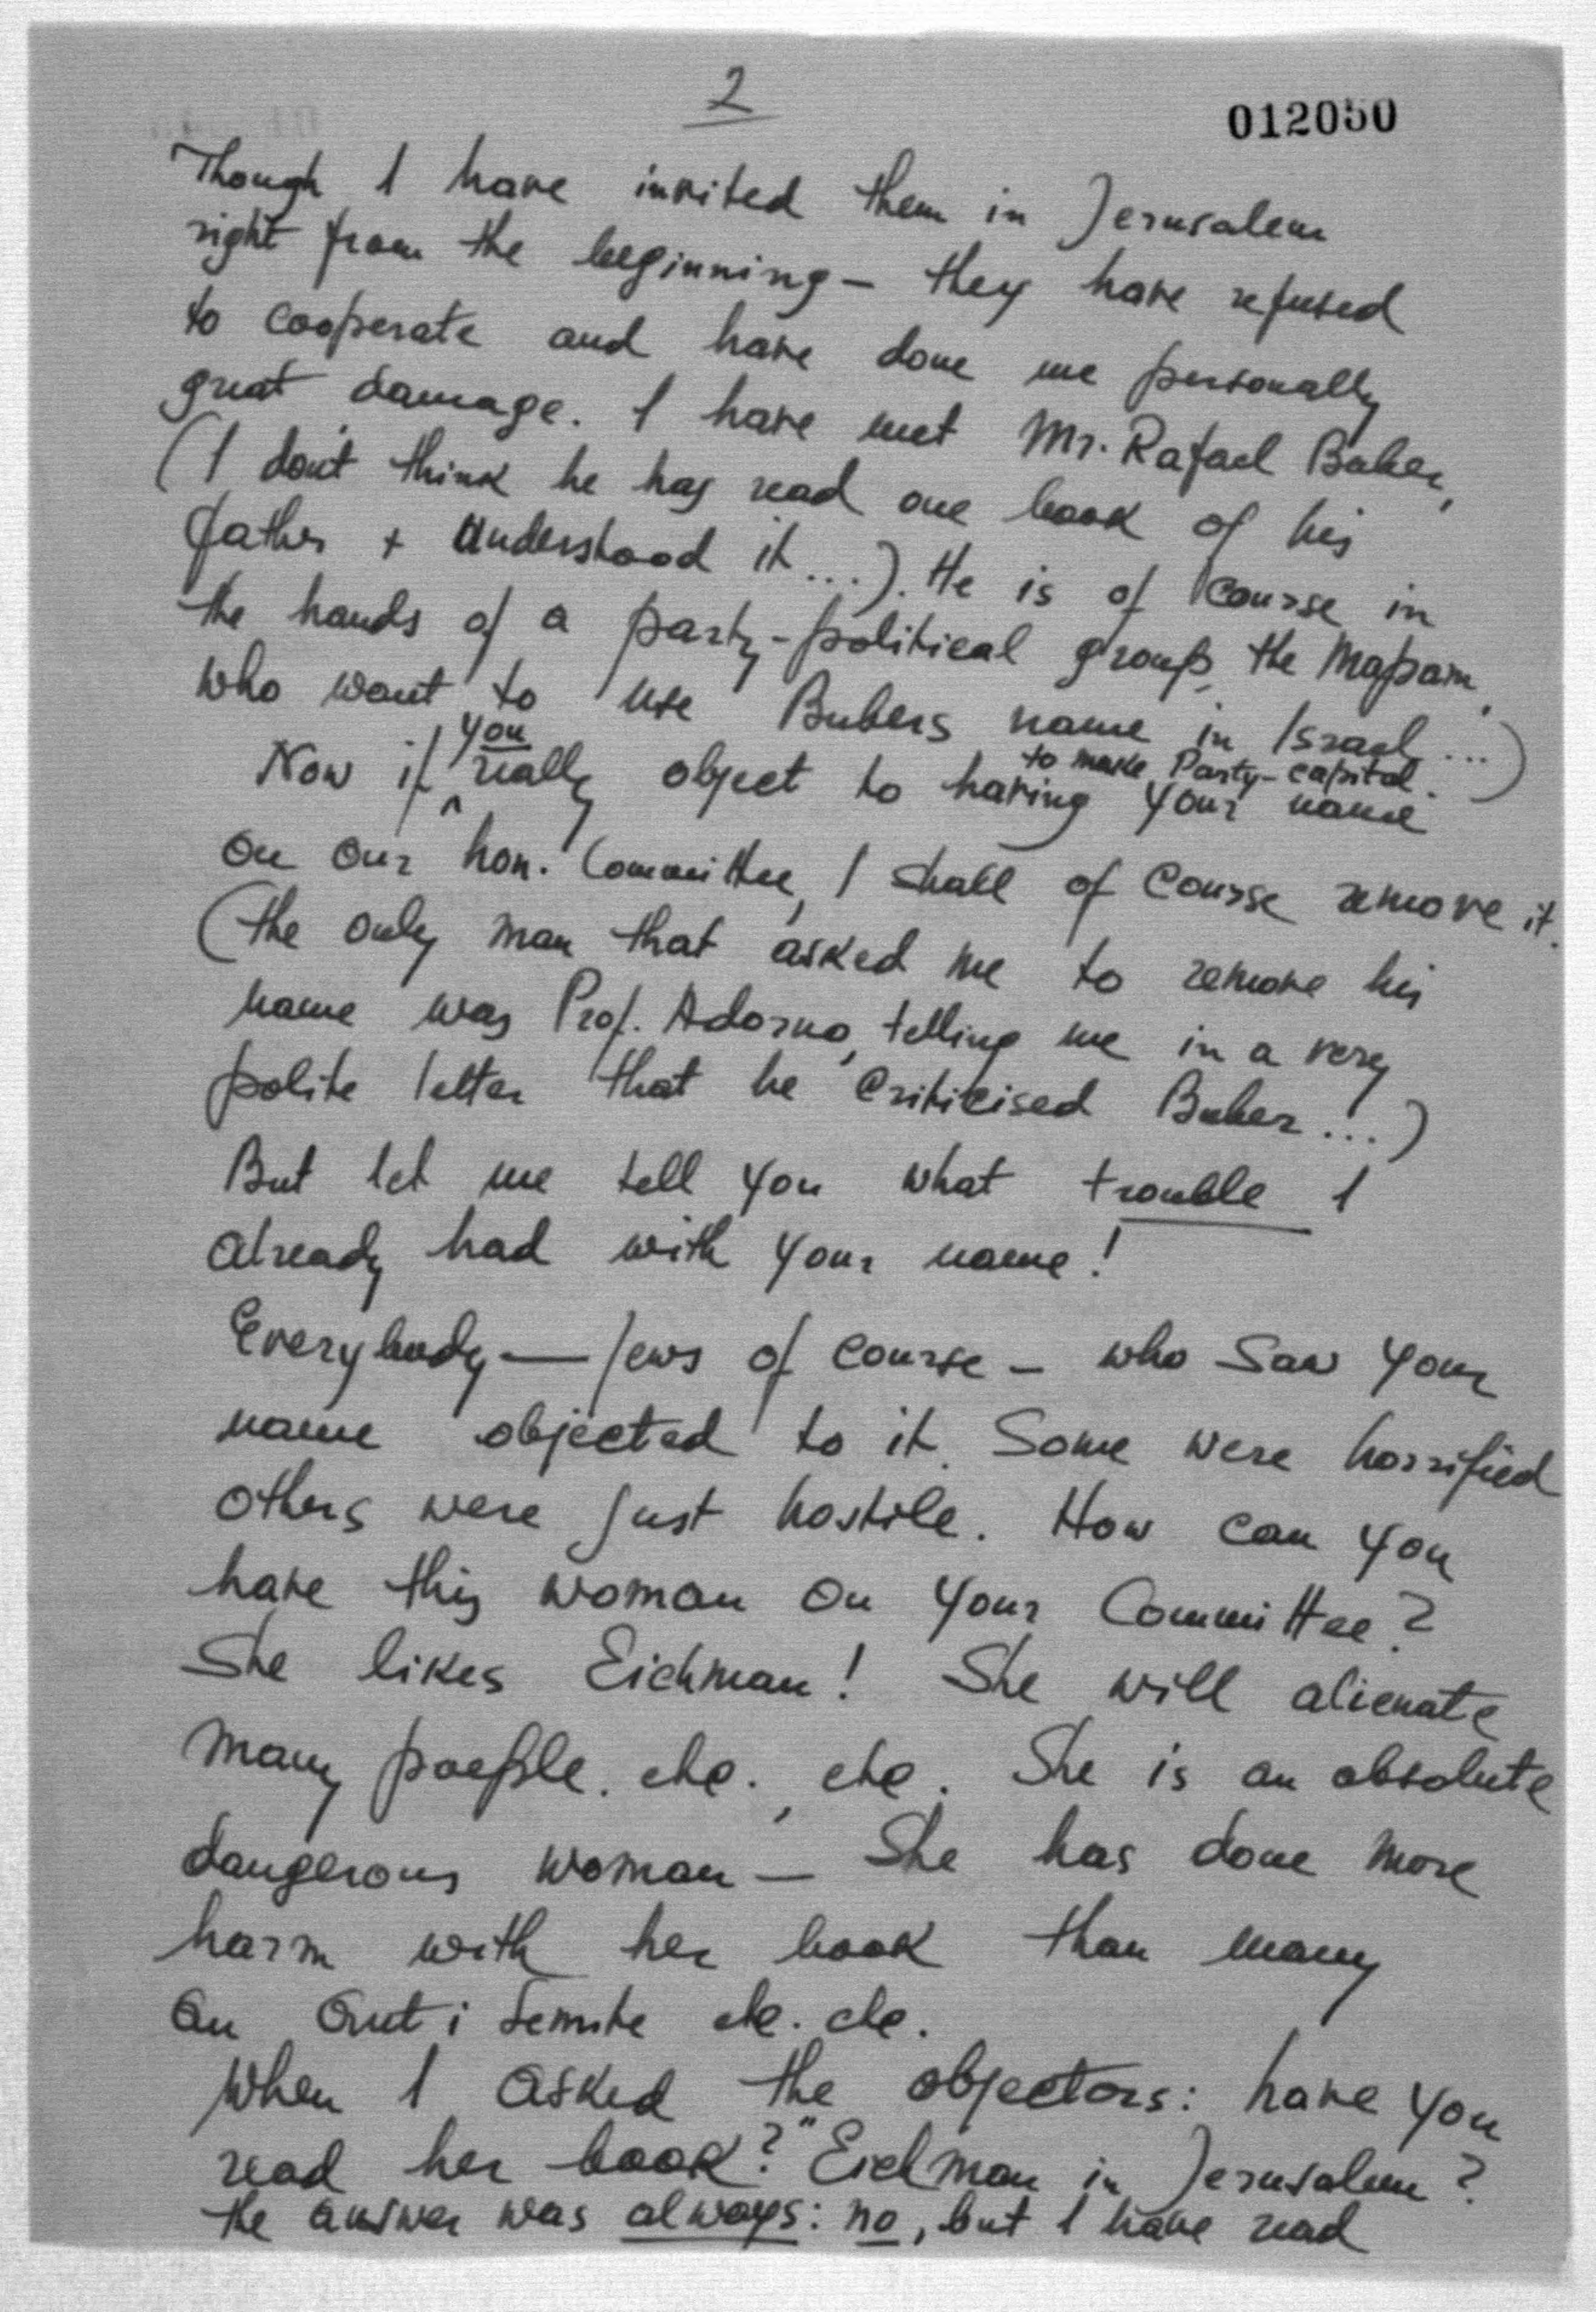 2
012050
Though I have invited them in Jerusalem
right from the beginning – they have refused
to cooperate and have done me personally
great damage. I have met Mr. Rafael Buber,
(I don't think he has read one book of his
father + understood it ....). He is of course in
the hands of a party-political group, the Mapam,
who want to use Bubers name in Israel ...)
to make Party-capital.
Now if you really object to having your name
on our hon. Committee, I shall of course remove it.
(the only man that asked me to remove his
name was Prof. Adorno, telling me in a very
polite letter that he criticised Buber!...)
But let me tell you what trouble I
already had with your name!
Everybody — Jews of course – who saw your
name objected to it. Some were horrified
others were just hostile. How can you
have this woman on your Committee?
She likes Eichman! She will alienate
many poeple. etc., etc. She is an absolute
dangerous woman — She has done more
harm with her book than many
an anti semite etc. etc.
When I asked the objectors: have you
read her book? "Eichman in Jerusalem?
the answer was always: no, but I have read